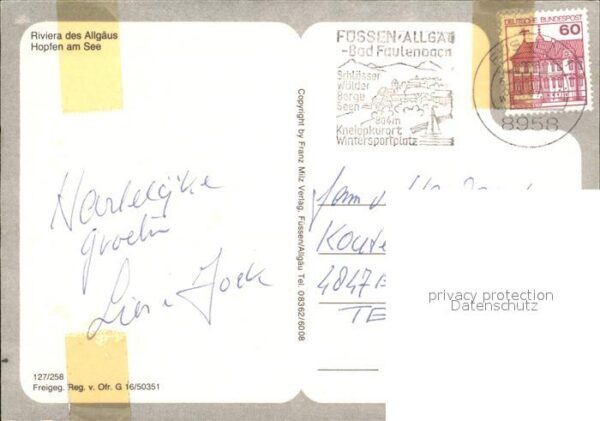 Riviera des Allgäus
Hopfen am See
FÜSSEN-ALLGÄU
-Bad Faulenbach
Schlösser
Wälder
Berge
Seen
804m
Kneippkurort
Wintersportplatz
DEUTSCHE BUNDESPOST
60
8958
Copyright by Franz Milz Verlag, Füssen/Allgäu Tel. 08362/6008
Hartelijke
groeten
Fam
4847
TE
privacy protection
Datenschutz
127/258
Freigeg. Reg. v. Ofr. G 16/50351